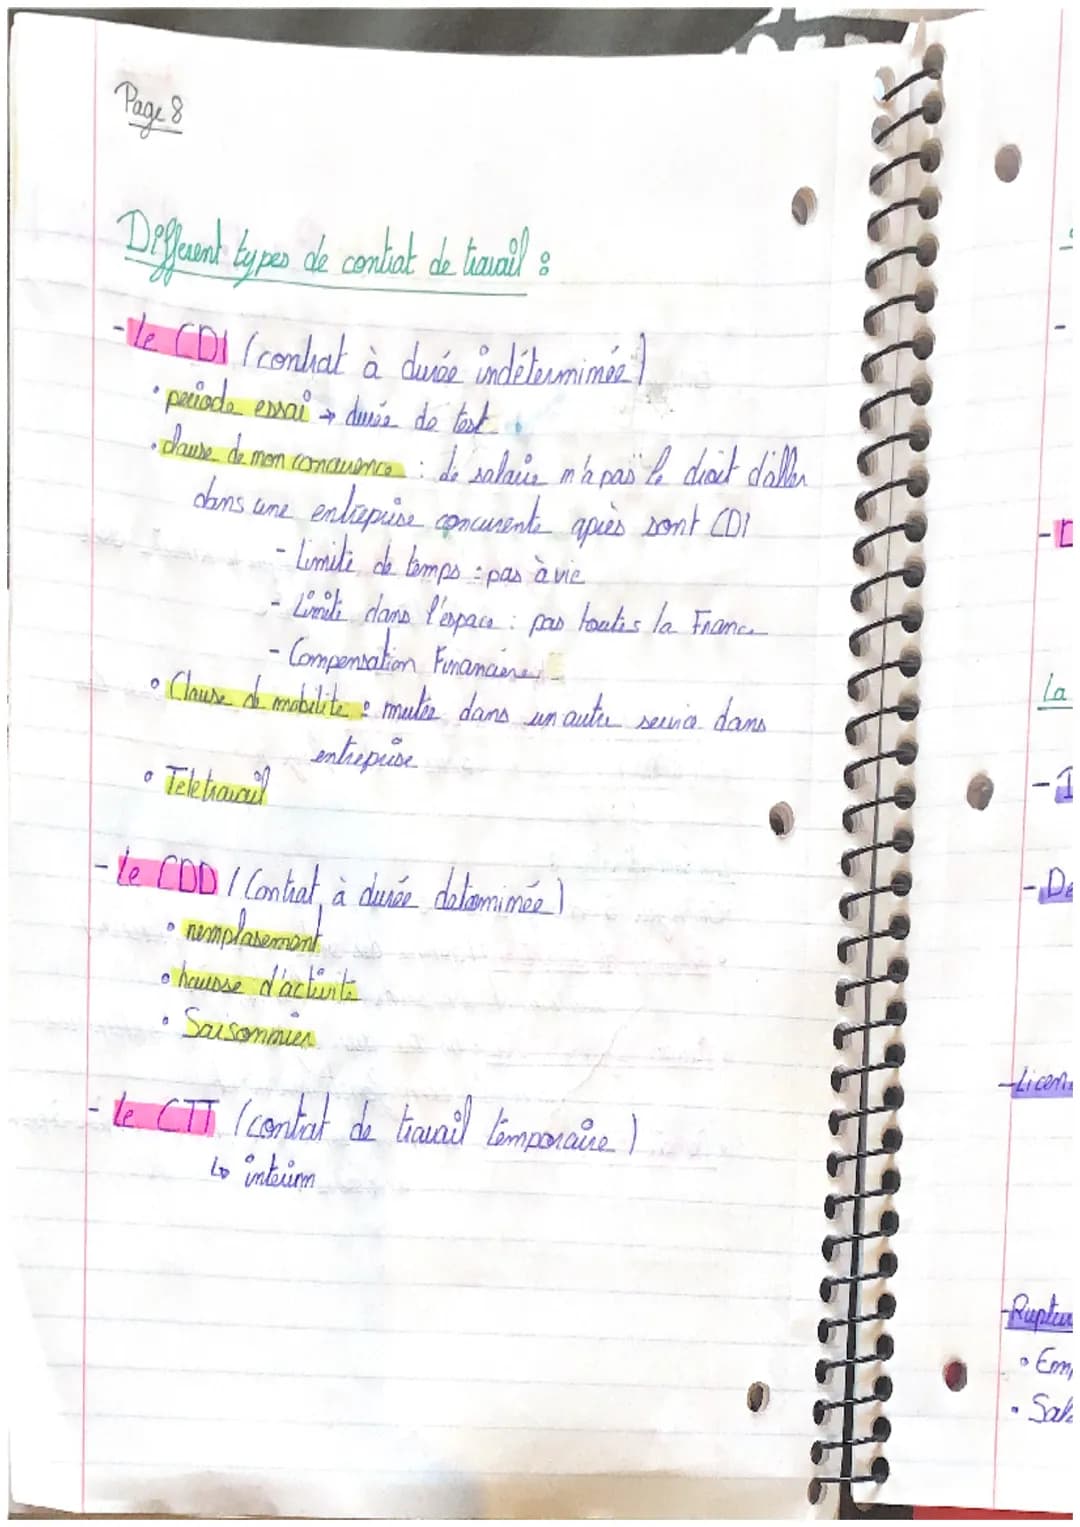 Page 8
Different types de contrat de travail :
- le CDI (contrat à durée indéterminée)
• periode essai → durée de test
• clause de non concurence : de salarie n'a pas le droit d'aller
dans une entreprise concurente après sont CDI
- Limite de temps : pas à vie
- Limite dans l'espace : pas toutes la France
- Compensation Financière
• Clause de mobilite : mutée dans un autre service dans
entreprise
• Teletravail
- le CDD (Contrat à durée determinée)
• remplasement
• hausse d'activité
• Saisonnier
- le CTT (contrat de travail temporaire)
↳ interim
La
- De
- Licen
- Ruptur
• Em
• Sala